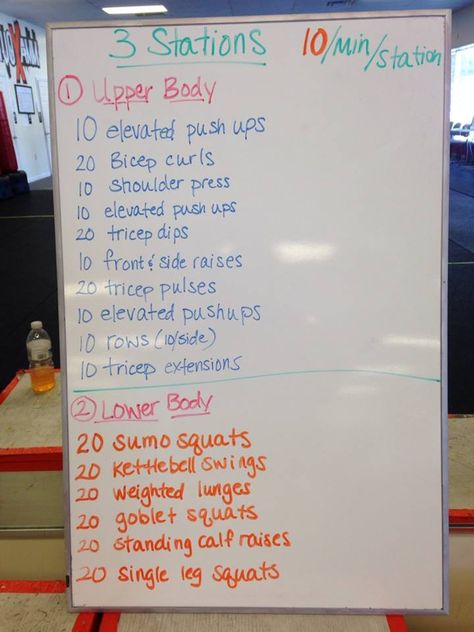 3 Stations
10/min/station
① Upper Body
10 elevated push ups
20 Bicep curls
10 shoulder press
10 elevated push ups
20 tricep dips
10 front & side raises
20 tricep pulses
10 elevated pushups
10 rows (10/side)
10 tricep extensions
② Lower Body
20 sumo squats
20 kettlebell swings
20 weighted lunges
20 goblet squats
20 standing calf raises
20 single leg squats